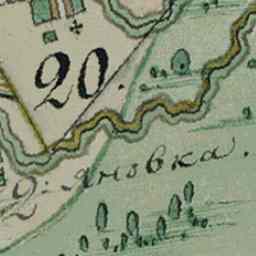 20.
Д: Яновка.